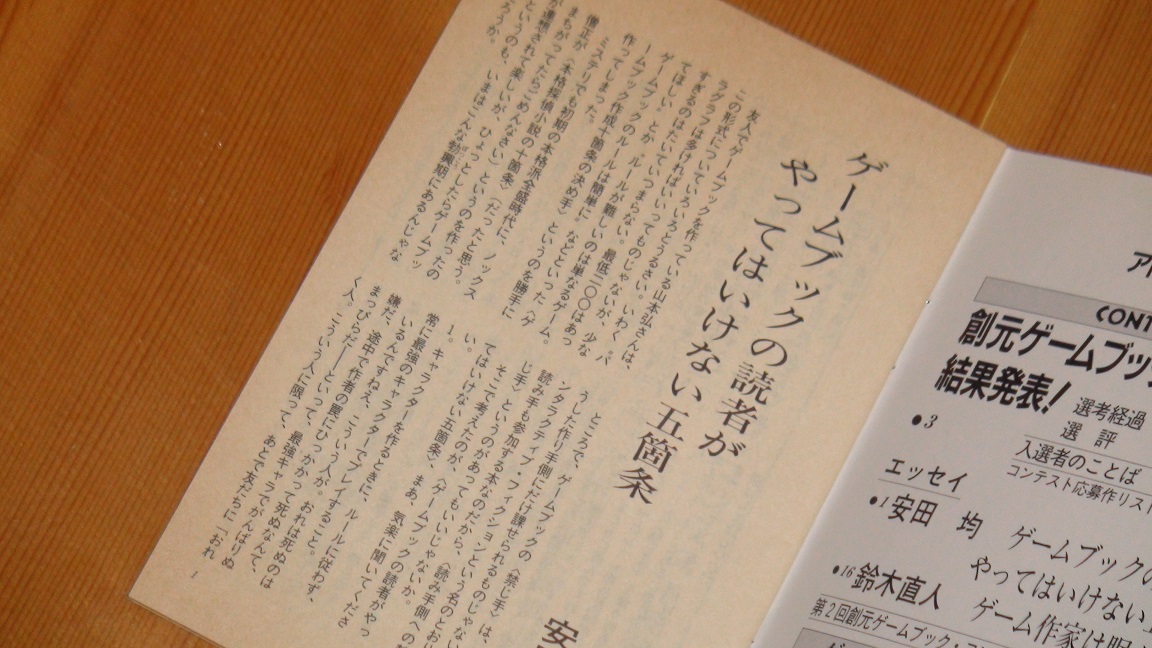 ゲームブックの読者が
やってはいけない五箇条
安
友人でゲームブックを作っている山本弘さんは、
この形式についていろいろとうるさい。いわく〝パ
ラグラフは多ければいいってものじゃないが、少な
すぎるのはたいていつまらない。最低二〇〇はあっ
てほしい〟とか〝ルールが難しいのは単なるゲーム。
ゲームブックのルールは簡単に〟などといった〈ゲ
ームブック作成十箇条の決め手〉というのを勝手に
作ってしまった。
ミステリでも初期の本格派全盛時代に、ノックス
僧正が〈本格探偵小説の十箇条〉(だったと思う。
まちがってたらごめんなさい)というのを作ったの
が連想されて楽しいが、ひょっとしたらゲームブッ
というのも、いまはこんな勃興期にあるんじゃな
ろうか。
ところで、ゲームブックの〈禁じ手〉は、
うした作り手側にだけ課せられるものじゃない
ンタラクティブ・フィクションという名のとおり
読み手も参加する本なのだから、〈読み手側への
じ手〉というのがあってもいいじゃないか。
そこで考えたのが、〈ゲームブックの読者がやっ
てはいけない五箇条〉、まあ、気楽に聞いてくださ
い。
1。キャラクターでプレイするとき、ルールに従わず、
常に最強のキャラクターを作ること。
いるんですねえ、こういう人が。おれは死ぬのは
嫌だ、途中で作者の罠にひっかかって死ぬなんて、
まっぴらだ——といって、最強キャラでがんばりぬ
く人。こういう人に限って、あとで友だちに「おれ
1
CONT
創元ゲームブッ
結果発表!
●3
選考経過
選 評
入選者のことば
コンテスト応募作リスト
エッセイ
●1 安田 均 ゲームブックの
やってはいけない
●16 鈴木直人 ゲーム作家は
第2回創元ゲームブック・